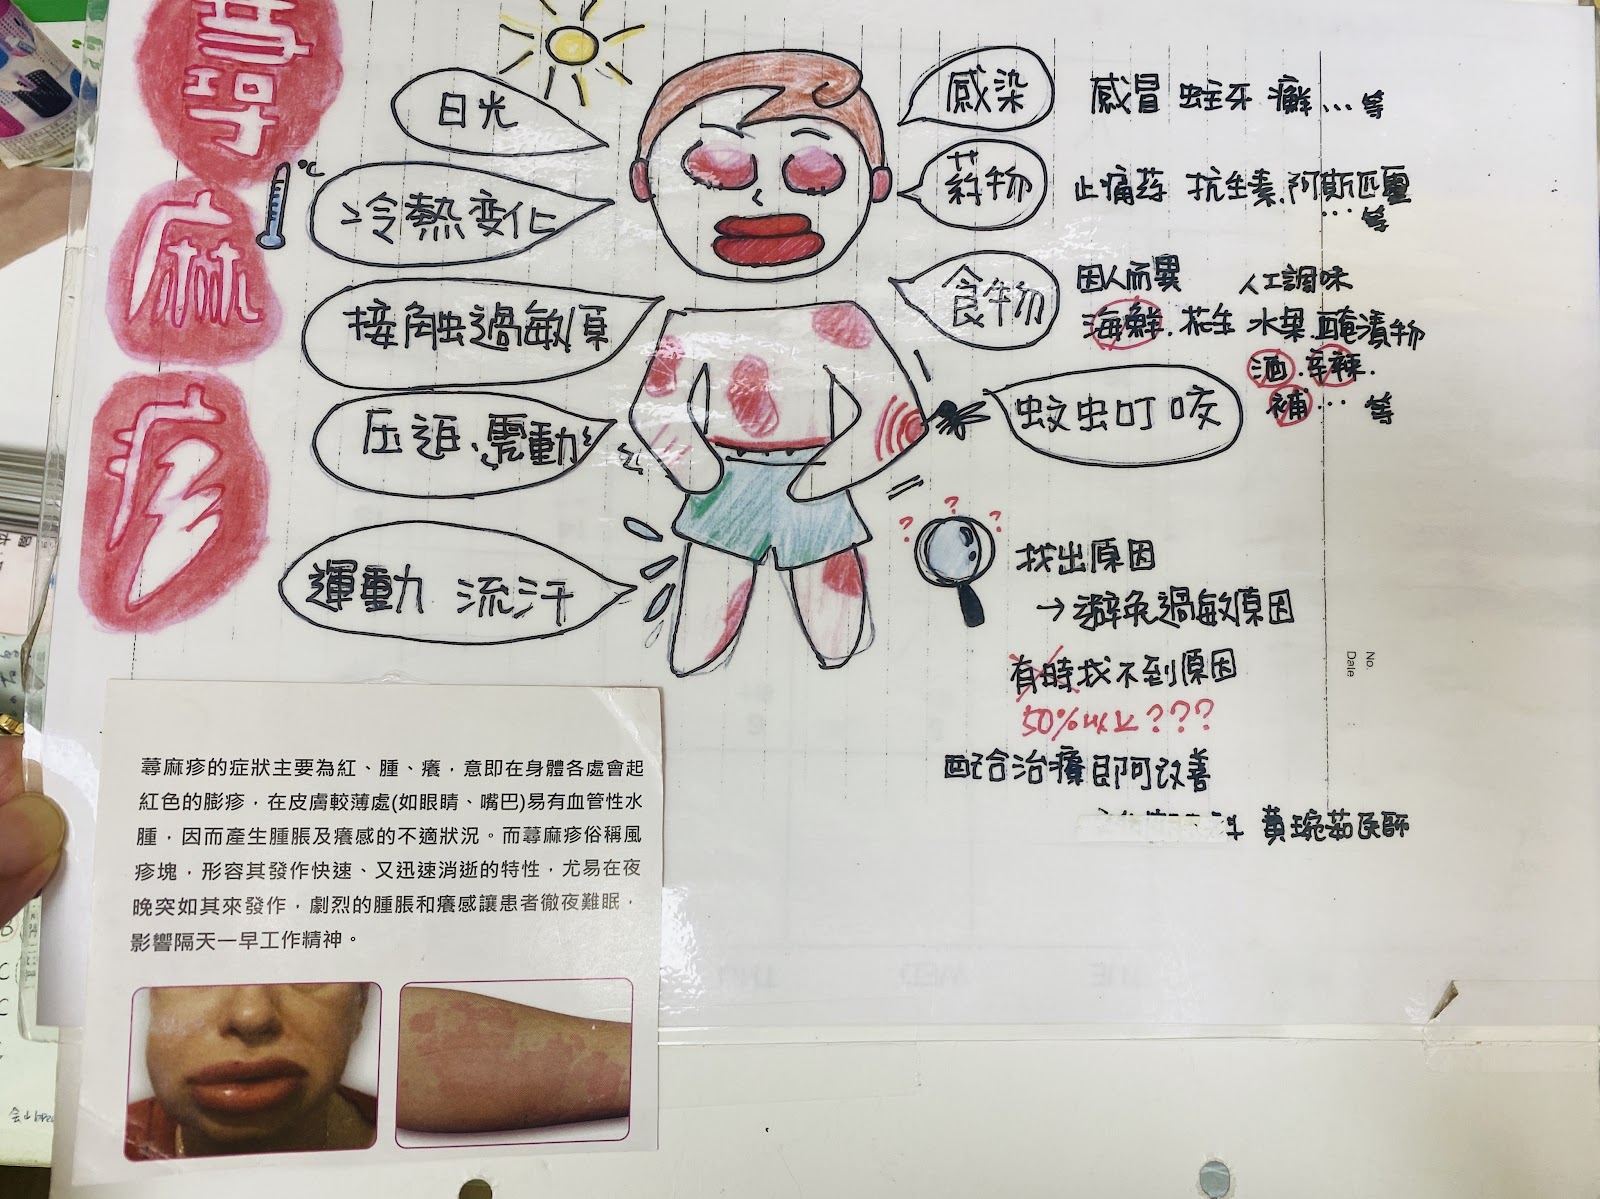 蕁
麻
疹
日光
℃
冷熱変化
接触過敏原
压迫、震動
運動 流汗
感染
感冒 蛀牙 癬…等
药物
止痛药 抗生素.阿斯匹靈
…等
食物
因人而異 人工調味
海鮮.花生 水果.醃漬物
酒.辛辣.
補…等
蚊虫叮咬
? ? ?
找出原因
→避免過敏原因
有時找不到原因
50%以上???
配合治療即可改善
科 黃琬茹医師
No.
Date
蕁麻疹的症狀主要為紅、腫、癢，意即在身體各處會起
紅色的膨疹，在皮膚較薄處(如眼睛、嘴巴)易有血管性水
腫，因而產生腫脹及癢感的不適狀況。而蕁麻疹俗稱風
疹塊，形容其發作快速、又迅速消逝的特性，尤易在夜
晚突如其來發作，劇烈的腫脹和癢感讓患者徹夜難眠，
影響隔天一早工作精神。